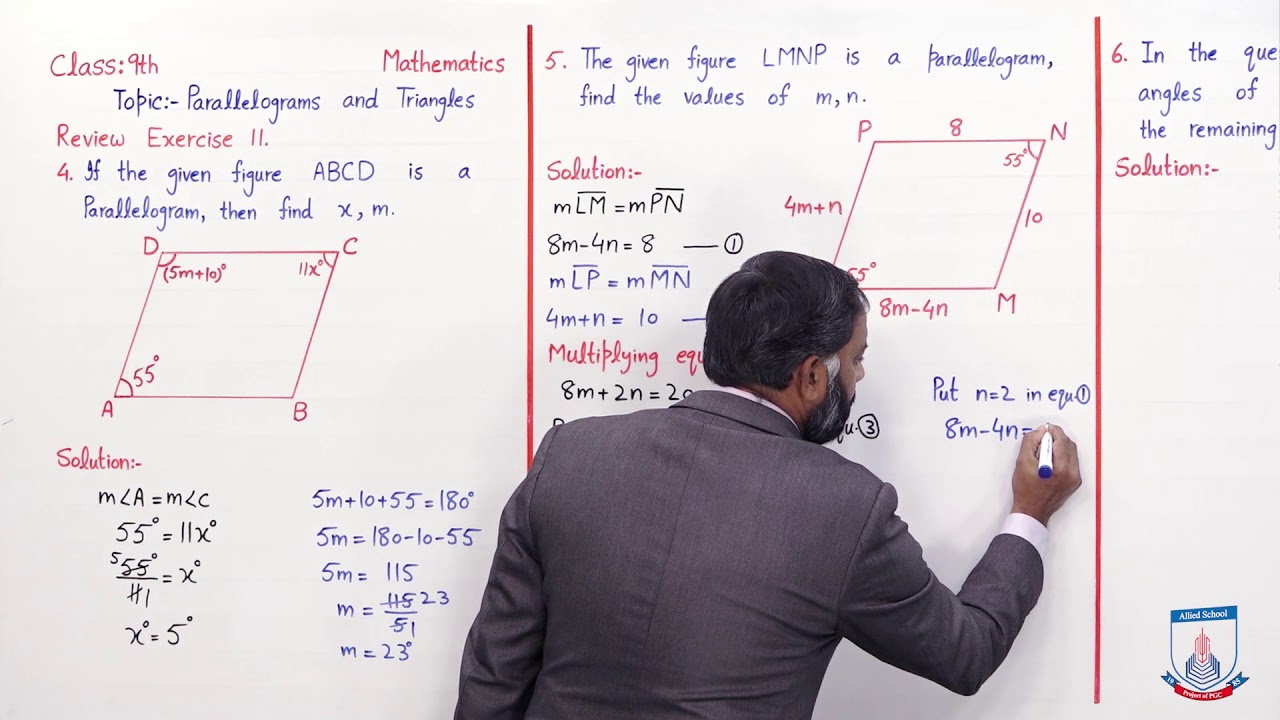 Class: 9th Mathematics
Topic:- Parallelograms and Triangles
Review Exercise 11.
4. If the given figure ABCD is a
Parallelogram, then find x, m.
D C
(5m+10)° 11x°
55°
A B
Solution:-
m<A = m<C
55° = 11x°
5
55° / 11 1 = x°
x° = 5°
5m+10+55 = 180°
5m = 180-10-55
5m = 115
m = 115 23 / 5 1
m = 23°
5. The given figure LMNP is a parallelogram,
find the values of m, n.
P 8 N
55°
4m+n 10
55°
8m-4n M
Solution:-
mLM = mPN
8m-4n = 8 — ①
mLP = mMN
4m+n = 10 —
Multiplying
8m+2n = 20
③
Put n=2 in equ.①
8m-4n=
6. In the
angles of
the remaining
Solution:-
Allied School
19 85
Project of PGC